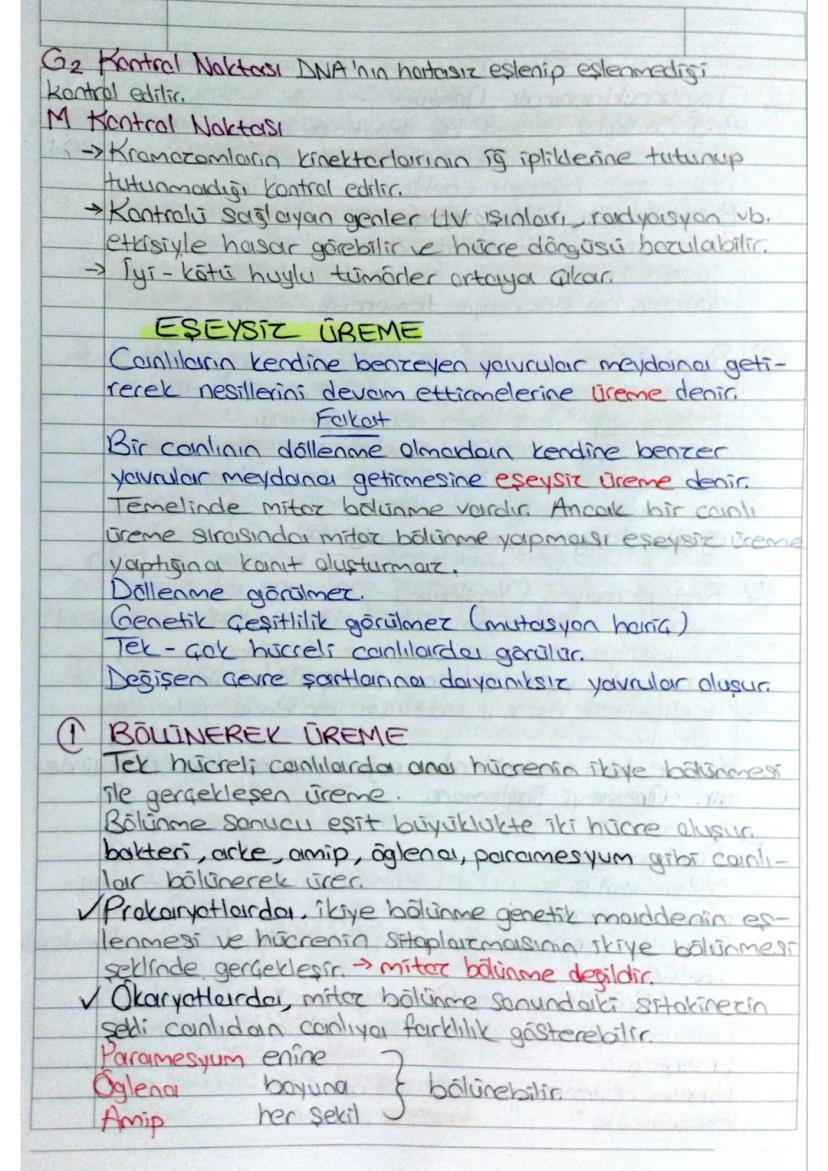 G2 Kontrol Noktası DNA'nın hatasız eşlenip eşlenmediği
kontrol edilir.
M Kontrol Noktası
→ Kromozomların kinektorlarının iğ ipliklerine tutunup
tutunmadığı kontrol edilir.
→ Kontrolü sağlayan genler UV ışınları, radyasyon vb.
etkisiyle hasar görebilir ve hücre döngüsü bozulabilir.
→ İyi-kötü huylu tümörler ortaya çıkar.
EŞEYSİZ ÜREME
Canlıların kendine benzeyen yavrular meydana geti-
rerek nesillerini devam ettirmelerine üreme denir.
Fakat
Bir canlının döllenme olmadan kendine benzer
yavrular meydana getirmesine eşeysiz üreme denir.
Temelinde mitoz bölünme vardır. Ancak bir canlı
üreme sırasında mitoz bölünme yapması eşeysiz üreme
yaptığına kanıt oluşturmaz.
Döllenme görülmez.
Genetik çeşitlilik görülmez (mutasyon hariç)
Tek-çok hücreli canlılarda görülür.
Değişen çevre şartlarına dayanıksız yavrular oluşur.
① BÖLÜNEREK ÜREME
Tek hücreli canlılarda ana hücrenin ikiye bölünmesi
ile gerçekleşen üreme.
Bölünme sonucu eşit büyüklükte iki hücre oluşur.
bakteri, arke, amip, öglena, paramesyum gibi canlı-
lar bölünerek ürer.
✓ Prokaryotlarda, ikiye bölünme genetik maddenin eş-
lenmesi ve hücrenin sitoplazmasının ikiye bölünmesi
şeklinde gerçekleşir. → mitoz bölünme değildir.
✓ Ökaryotlarda, mitoz bölünme sonundaki sitokinezin
şekli canlıdan canlıya farklılık gösterebilir.
Paramesyum enine
Öglena boyuna } bölünebilir.
Amip her şekil